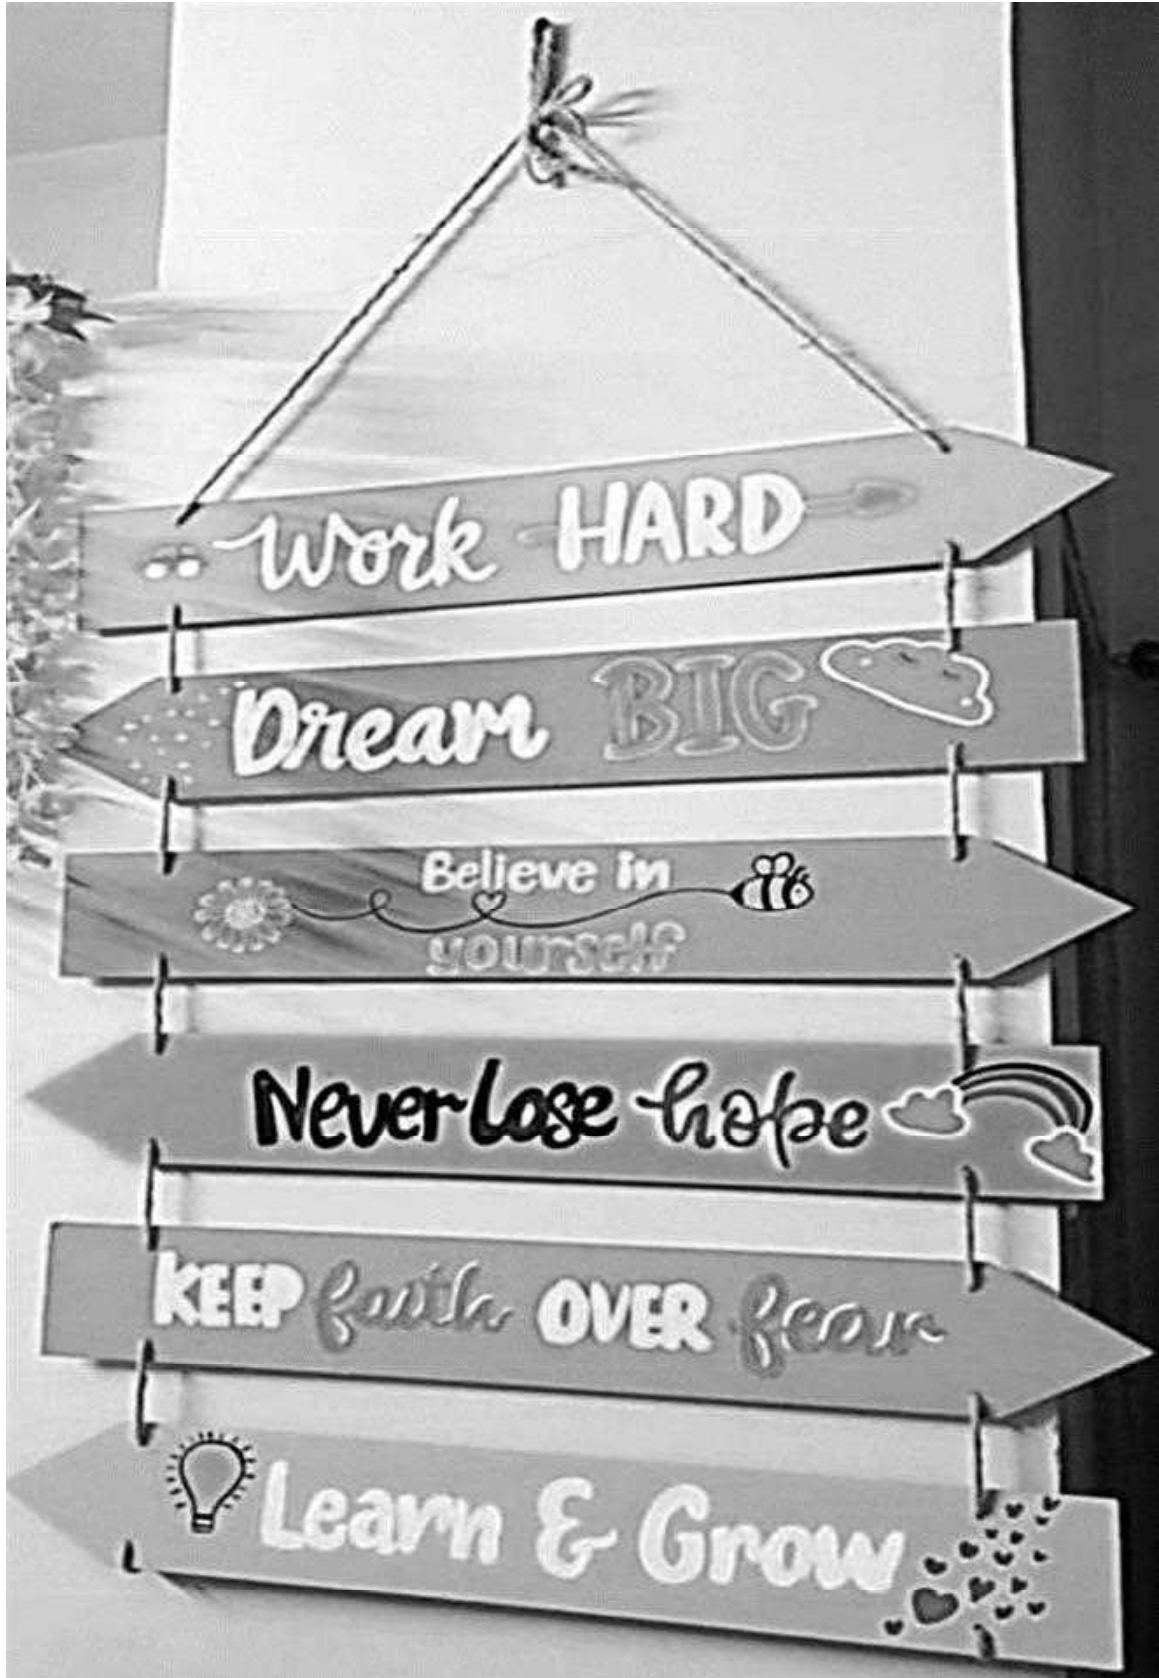 Work HARD
Dream BIG
Believe in
yourself
Never Lose hope
KEEP faith OVER fear
Learn & Grow